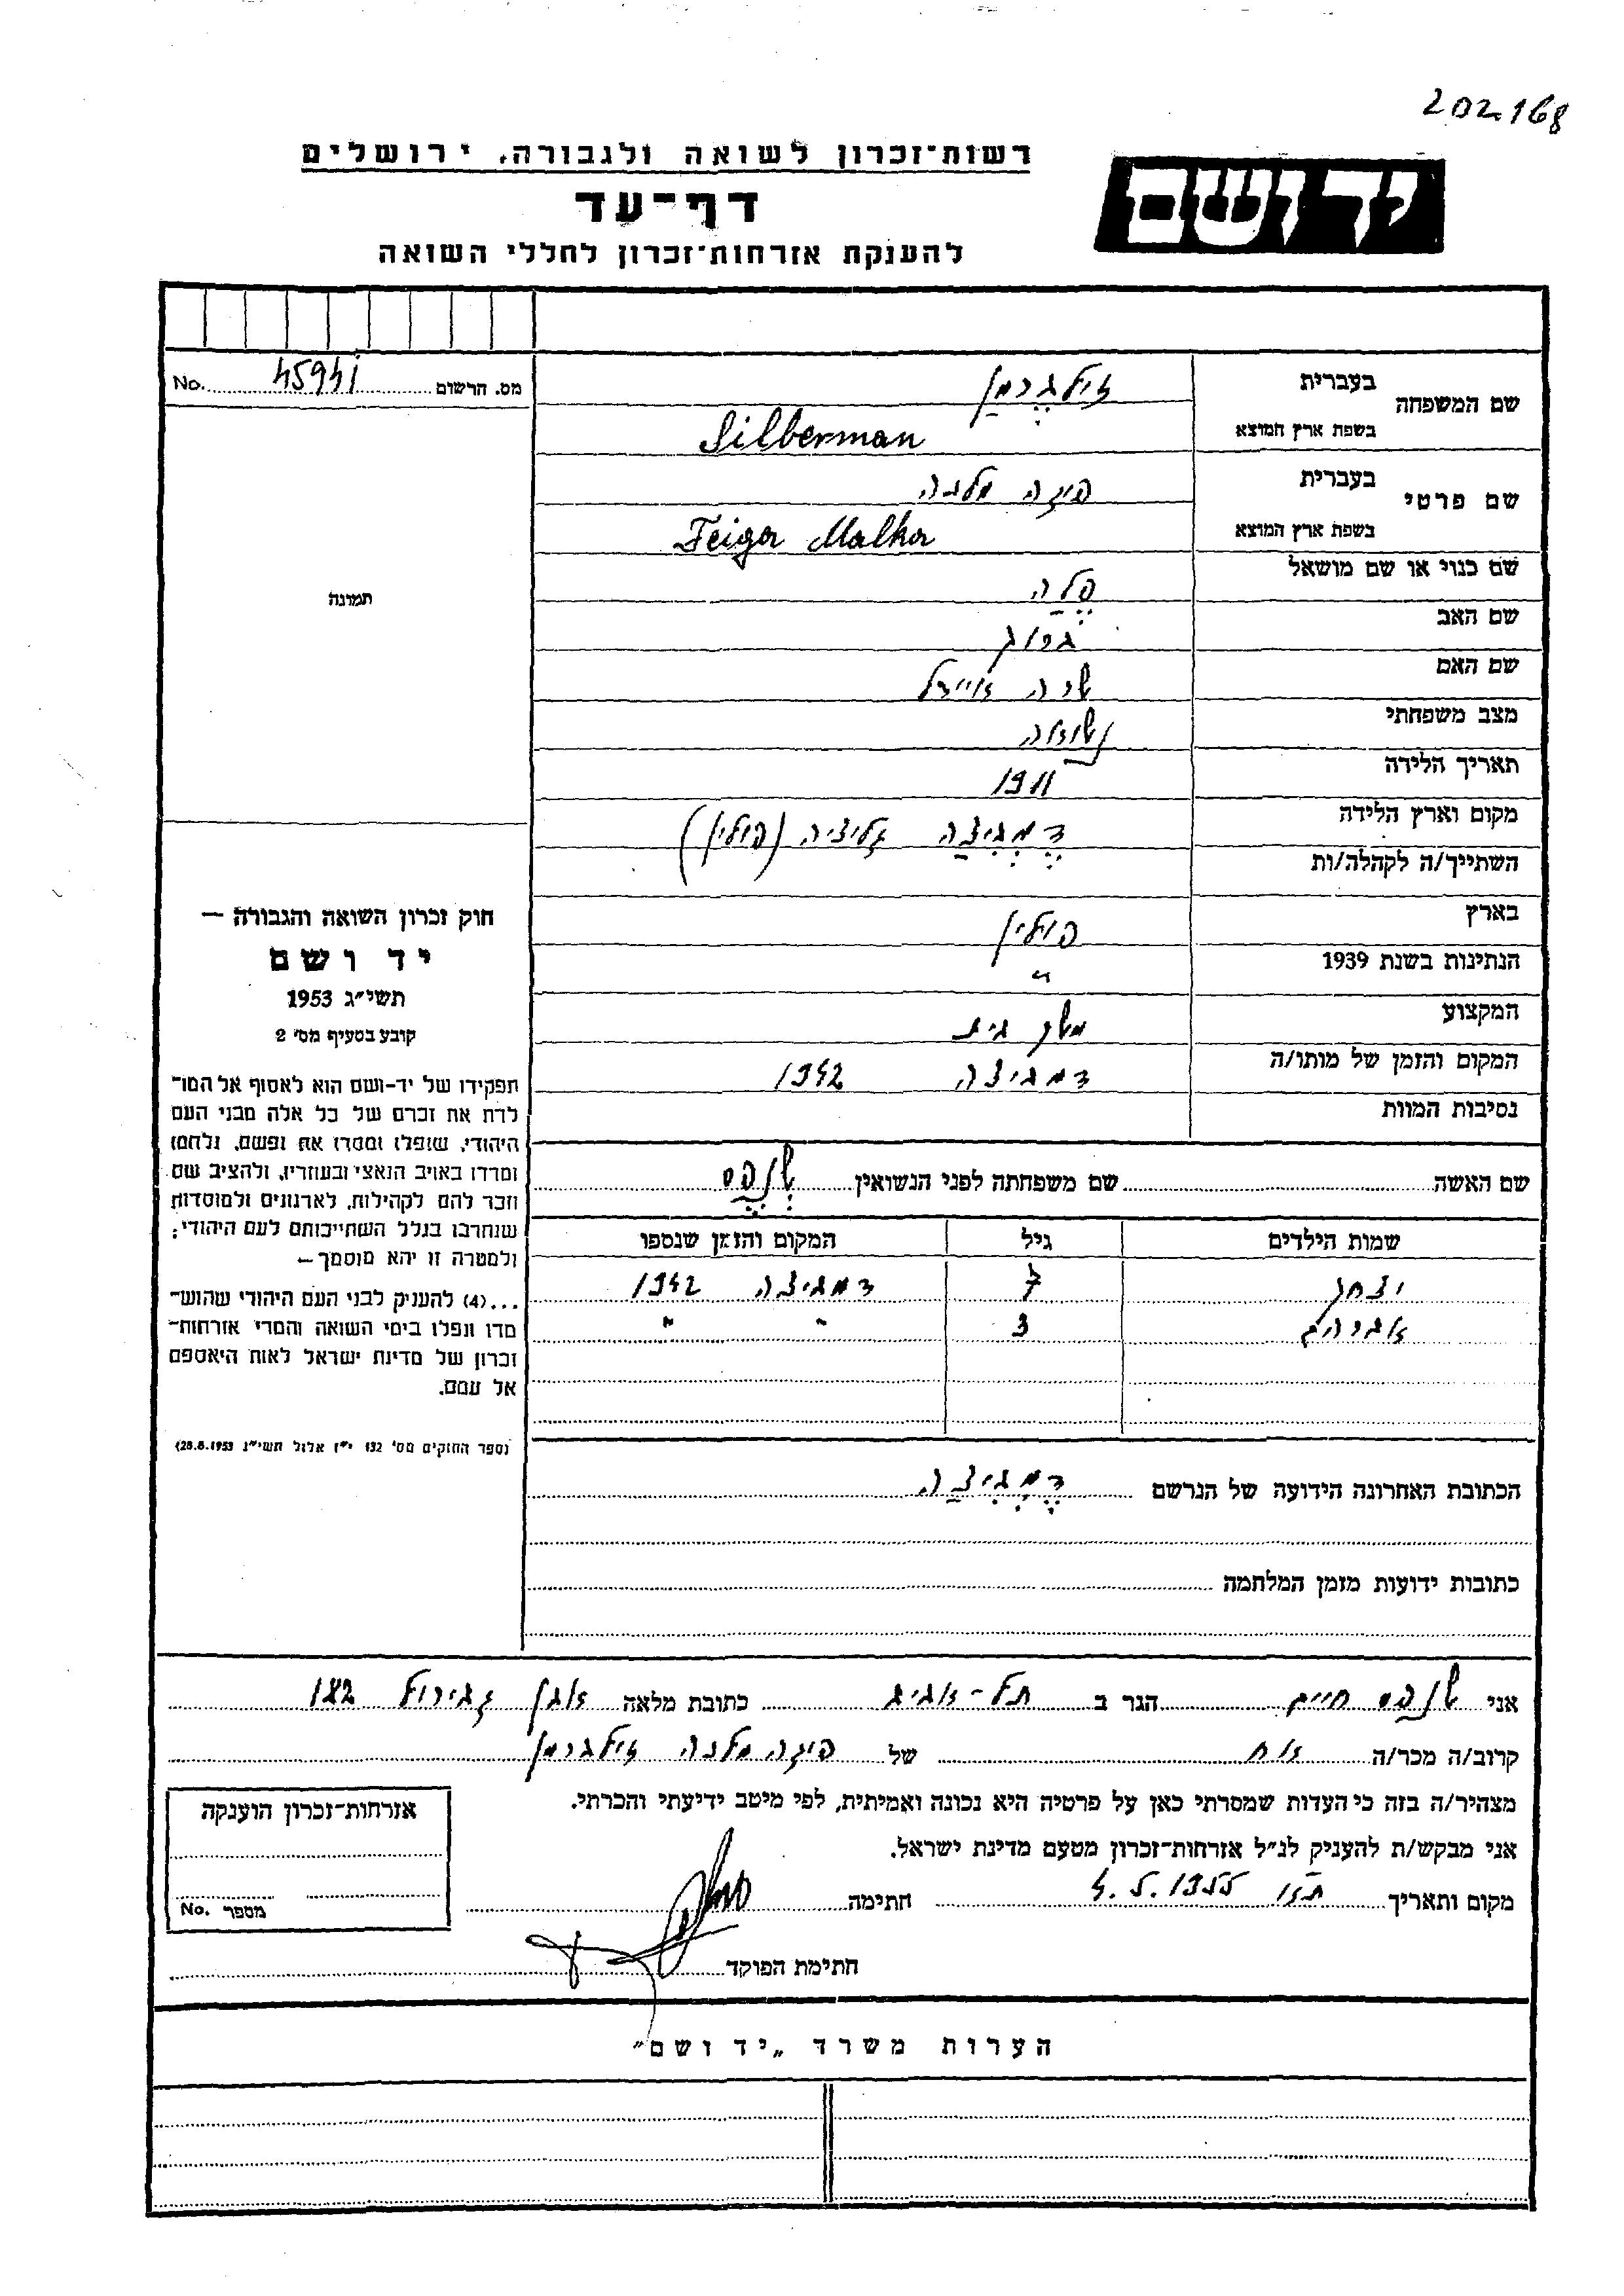 202168
רשות־זכרון לשואה ולגבורה, ירושלים
יד ושם
דף־עד
להענקת אזרחות־זכרון לחללי השואה
מס. הרשום 45941 No.
שם המשפחה בעברית זילבֶּרמַן
בשפת ארץ המוצא Silberman
שם פרטי בעברית פיגה מלכה
בשפת ארץ המוצא Feiga Malka
שם כנוי או שם מושאל פֶלַה
שם האב ברוך
שם האם שרה אייזל
מצב משפחתי נשואה
תאריך הלידה 1911
מקום וארץ הלידה דֶמְבִּיצַה גליציה (פולין)
השתייך/ה לקהלה/ות
בארץ פולין
הנתינות בשנת 1939 "
המקצוע משק בית
המקום והזמן של מותו/ה דמביצה 1942
נסיבות המוות
שם האשה שם משפחתה לפני הנשואין
שמות הילדים גיל המקום והזמן שנספו
יצחק 7 דמביצה 1942
אברהם 3 " "
הכתובת האחרונה הידועה של הנרשם דֶמְבִּיצַה
כתובות ידועות מזמן המלחמה
תמונה
חוק זכרון השואה והגבורה —
יד ושם
תשי"ג 1953
קובע בסעיף מס' 2
תפקידו של יד-ושם הוא לאסוף אל המו־
לדת את זכרם של כל אלה מבני העם
היהודי, שנפלו ומסרו את נפשם, נלחמו
ומרדו באויב הנאצי ובעוזריו, ולהציב שם
וזכר להם לקהילות, לארגונים ולמוסדות
שנחרבו בגלל השתייכותם לעם היהודי;
ולמטרה זו יהא מוסמך —
...(4) להעניק לבני העם היהודי שהוש־
מדו ונפלו בימי השואה והמרי אזרחות־
זכרון של מדינת ישראל לאות היאספם
אל עמם.
(ספר החוקים מס' 132 י"ז אלול תשי"ג 28.8.1953)
אני חיים הגר ב תל-אביב כתובת מלאה אבן גבירול 182
קרוב/ה מכר/ה אח של פיגה מלכה זילברמן
מצהיר/ה בזה כי העדות שמסרתי כאן על פרטיה היא נכונה ואמיתית, לפי מיטב ידיעתי והכרתי.
אני מבקש/ת להעניק לנ"ל אזרחות־זכרון מטעם מדינת ישראל.
מקום ותאריך 4.5.1955 חתימה
חתימת הפוקד
אזרחות־זכרון הוענקה
מספר No.
הערות משרד „יד ושם"